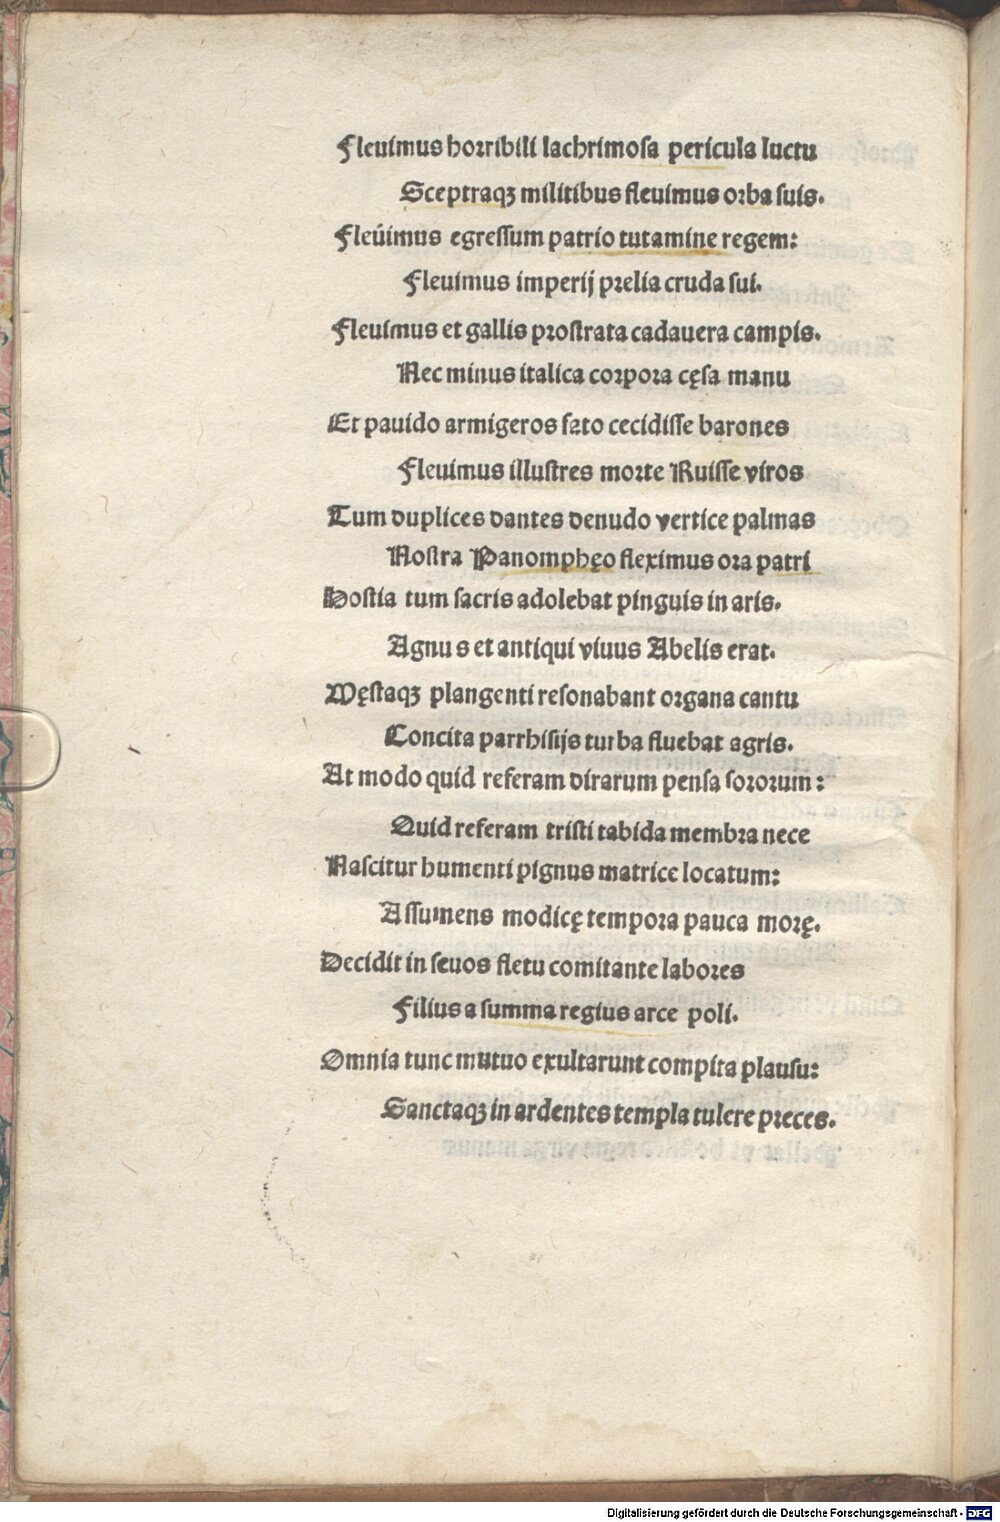 Fleuimus horribili lachrimosa pericula luctu
Sceptraqꝫ militibus fleuimus orba suis.
Fleúimus egressum patrio tutamine regem:
Fleuimus imperij prelia cruda sui.
Fleuimus et gallis prostrata cadauera campis.
Nec minus italica corpora cęsa manu
Et pauido armigeros fato cecidisse barones
Fleuimus illustres morte Ruisse viros
Tum duplices dantes denudo vertice palmas
Nostra Panomphęo fleximus ora patri
Hostia tum sacris adolebat pinguis in aris.
Agnus et antiqui viuus Abelis erat.
Męstaqꝫ plangenti resonabant organa cantu
Concita parrhisijs turba fluebat agris.
At modo quid referam dirarum pensa sororum:
Quid referam tristi tabida membra nece
Nascitur humenti pignus matrice locatum:
Assumens modicę tempora pauca morę.
Decidit in seuos fletu comitante labores
Filius a summa regius arce poli.
Omnia tunc mutuo exultarunt compita plausu:
Sanctaqꝫ in ardentes templa tulere preces.
Digitalisierung gefördert durch die Deutsche Forschungsgemeinschaft - DFG